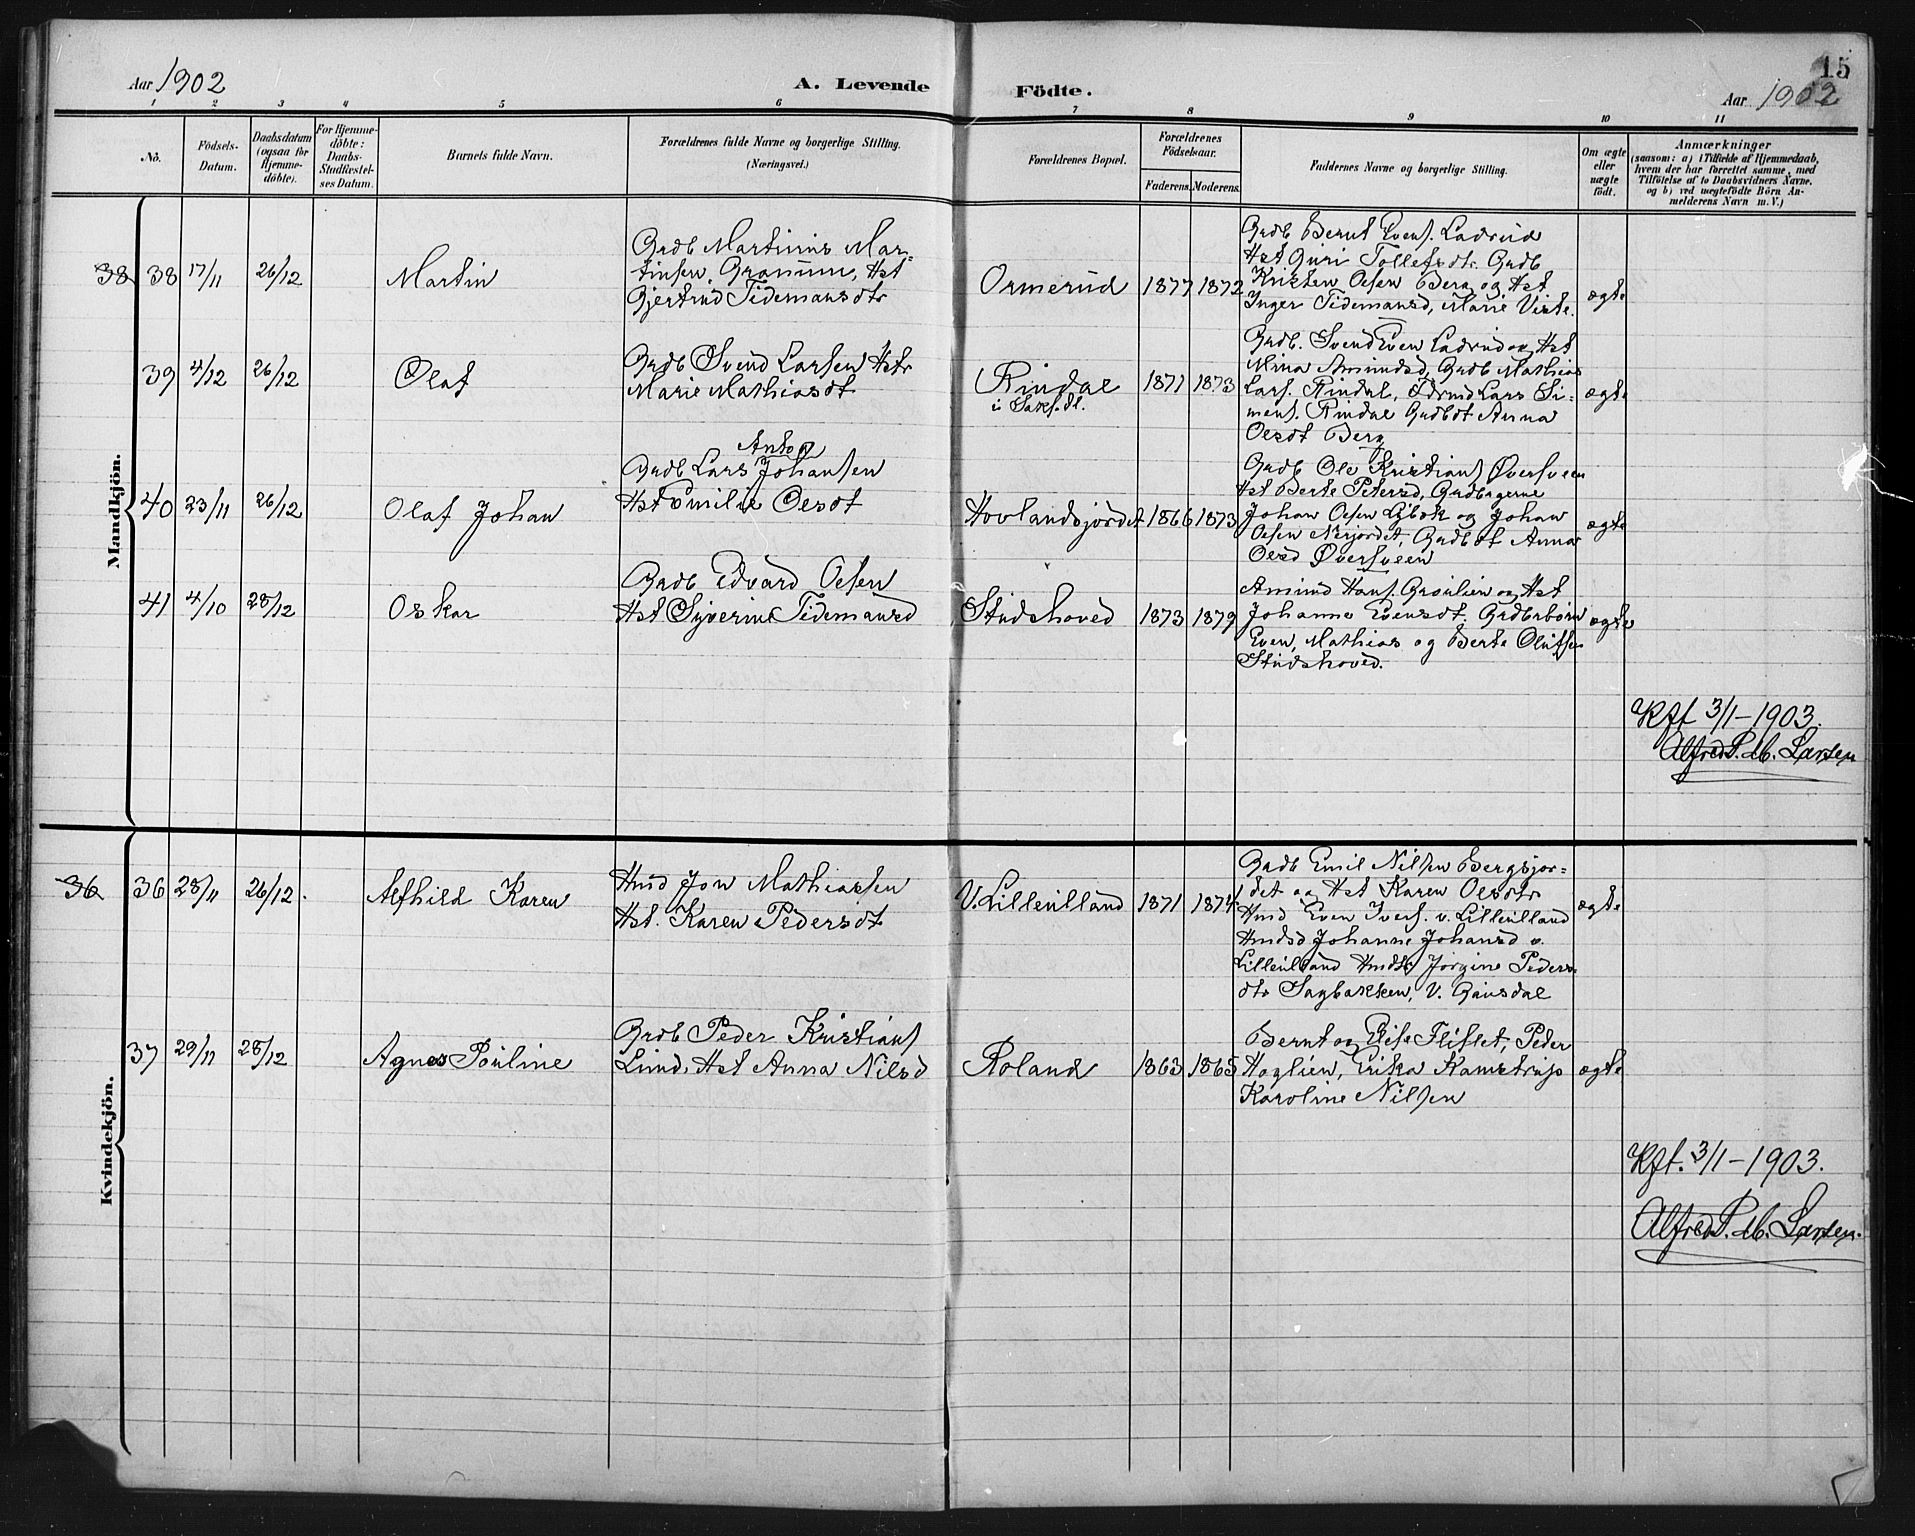 15
Aar 1902
A. Levende Födte.
Aar 1902
1 2 3 4 5 6 7 8 9 10 11
No.
Födsels-
Datum.
Daabsdatum
(ogsaa for
Hjemme-
döbte).
For Hjemme-
döbte:
Daabs-
Stadfæstel-
ses Datum.
Barnets fulde Navn.
Forældrenes fulde Navne og borgerlige Stilling.
(Næringsvei.)
Forældrenes Bopæl.
Forældrenes
Födselsaar.
Faderens. Moderens.
Faddernes Navne og borgerlige Stilling.
Om ægte
eller
uægte
födt.
Anmærkninger
(saasom: a) i Tilfælde af Hjemmedaab,
hvem der har forrettet samme, med
Tilföielse af to Daabsvidners Navne,
og b) ved uægtefödte Börn An-
melderens Navn m. V.)
Mandkjön.
38 38 17/11 26/12
Martin
Grdb Martinus Mar-
tinsen Granum, Hst
Gjertrud Tidemansdtr
Ormerud
1877 1872
Grdb Bernt Evens. Ladrud
Hst Guri Tollefsdtr. Grdb
Kristen Olsen Berg og Hst
Inger Tidemansd, Marie Viste.
ægte
39 4/12 26/12
Olaf
Grdb Svend Larsen Hstr
Marie Mathiasdt.
Rindal
i Saks.dl.
1871 1873
Grdb. Svend Even Ladrud og Hst
Mina Amundsd, Grdb Mathias
Lars. Rindal, Lars Si-
mens. Rindal Grdbdt Anna
Olsdt Berg
ægte
40 23/11 26/12
Olaf Johan
Anton
Grdb Lars Johansen
Hst Emilie Olsdt
Hovlandsjordet
1866 1873
Grdb Ole Kristians Øversveen
Hst Berte Petersd, Grdbrgerne
Johan Olsen Lybæk og Johan
Olsen Nerjordet, Grdbdt Anna
Olsd Øversveen
ægte
41 4/10 28/12
Oskar
Grdb Edvard Olsen
Hst Syverine Tidemansd
Studshoved
1873 1879
Amund Hans. Graulien og Hst
Johanne Evensdt. Grdbrbørn
Even, Mathias og Berte Olufsen
Studshoved.
ægte
Kft 3/1-1903.
Alfred P. M. Larsen
Kvindekjön.
36 36 28/11 26/12.
Alfhild Karen
Hmd Jon Mathiassen
Hst. Karen Pedersdt
V. Lilleulland
1871 1874
Grdb Emil Nilsen Bergsjor-
det og Hst Karen Olsdtr
Hmd Even Ivers. v. Lilleulland
Hmdsd Johanne Johansd v.
Lilleulland Jørgine Peders-
dtr Sagbakken, V. Gausdal
ægte
37 29/11 28/12
Agnes Pouline
Grdb Peder Kristians
Lund, Hst Anna Nilsd
Roland
1863 1865
Bernt og Elise Fliflet, Peder
Haglien, Erika Kamstrup
Karoline Nilsen
ægte
Kft. 3/1-1903.
Alfred P. M. Larsen.